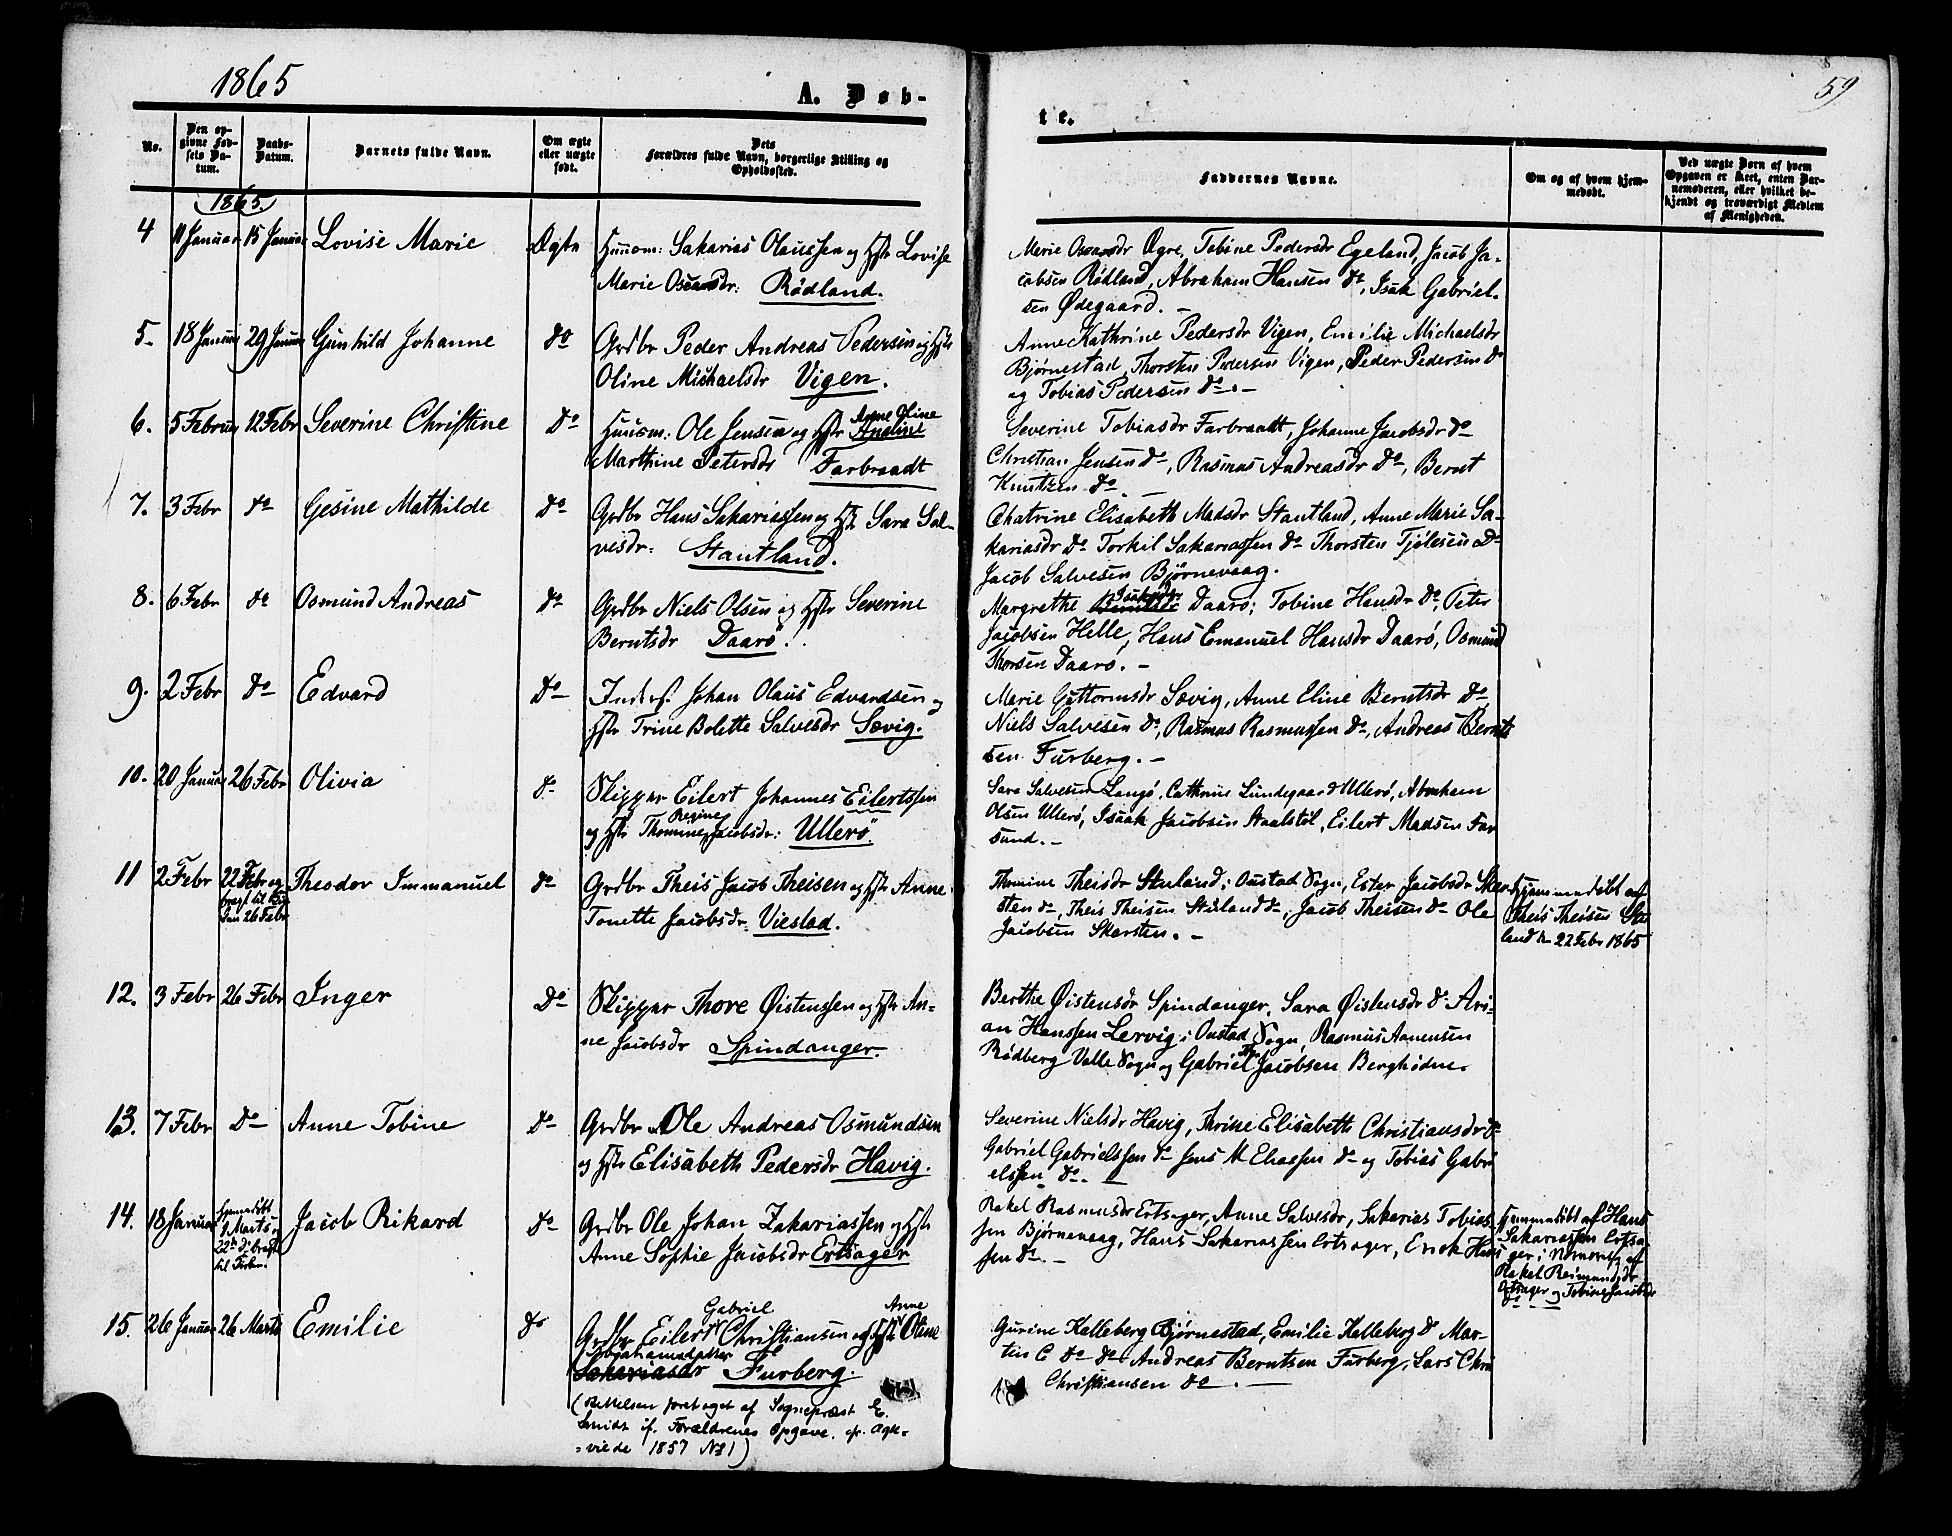 1865
A. Døb-
te.
59
No.
Den opgivne Fødsels Datum.
Daabs-Datum.
Barnets fulde Navn.
Om ægte eller uægte født.
Dets Forældres fulde Navn, borgerlige Stilling og Opholdssted.
Faddernes Navne.
Om og af hvem hjemmedøbt.
Ved uægte Børn af hvem Opgaven er skeet, enten Barnemoderen, eller hvilket bekjendt og troværdigt Medlem af Menigheden.
1865.
4 11 Januar 15 Januar Lovise Marie Ægte Huusm: Sakarias Olaussen og Hstr Lovise
Marie Oscarsdr: Rødland.
Marie Oscarsdr Øgre, Tobine Pedersdr Egeland, Jacob Ja-
cobsen Rødland, Abraham Hansen do, Isak Gabriel-
sen Ødegaard. -
5 18 Januar 29 Januar Gunhild Johanne do Grdbr Peder Andreas Pedersen og Hstr
Oline Michaelsdr Vigen.
Anne Kathrine Pedersdr Vigen, Emilie Michaelsdr
Bjørnestad, Thorsten Pedersen Vigen, Peder Pedersen do
og Tobias Pedersen do. -
6. 5 Februar 12 Febr Severine Christine Do Huusm: Ole Jensen og Hstr Anne Oline Aneline
Marthine Petersdr Farbraadt
Severine Tobiasdr Farbraadt, Johanne Jacobsdr do
Christian Jensen do, Rasmus Andreasdr do, Bernt
Knutzen do. -
7. 3 Febr do Gesine Mathilde Do Grdbr Hans Sakariassen og Hstr Sara Sal-
vesdr: Stautland.
Chatrine Elisabeth Madsdr Stautland, Anne Marie Sa-
kariasdr do Torkil Sakariassen do Thorsten Tjølesen Do
Jacob Salvesen Bjørnevaag.
8. 6 Febr do Osmund Andreas do Grdbr Niels Olsen og Hstr Severine
Berntsdr Daarø.
Margrethe Daarø; Tobine Hansdr do, Peter
Jacobsen Helle, Hans Emanuel Hansdr Daarø, Osmund
Thorsen Daarø. -
9. 2 Febr Do Edvard Do Inders. Johan Olaus Edvardsen og
Hstr Trine Bolette Salvesdr Sævig.
Marie Guttormsdr Sævig, Anne Eline Berntsdr do
Niels Salvesen do, Rasmus Rasmussen do, Andreas Bernt
sen Furberg. -
10. 20 Januar 26 Febr Olivia do Skipper Eilert Johannes Eilertssen
og Hstr Thomine Regine Jacobsdr: Ullerø.
Sara Salvesen Langø, Cathrine Lundegaard Ullerø, Abraham
Olsen Ullerø, Isaak Jacobsen Staalstøl, Eilert Madsen Far
sund. -
11 2 Febr 22 Febr og bragt til Kirken 26 Febr Theodor Immanuel do Grdbr Theis Jacob Theisen og Hstr Anne
Tonette Jacobsdr: Viestad.
Thomine Theisdr Stuland, Oustad Sogn, Ester Jacobsdr Skar-
sten do, Theis Theisen Stuland do, Jacob Theisen do Ole
Jacobsen Skarsten. -
Hjemmedøbt af
Theis Theisen Stu
land den 22 Febr 1865
12. 3 Febr 26 Febr Inger Do Skipper Thore Øistenssen og Hstr An-
ne Jacobsdr Spindanger.
Berthe Øistensdr Spindanger, Sara Øistensdr do Ari-
an Hanssen Lervig i Oustad Sogn, Rasmus Aanensen
Rødberg Valle Sogn og Gabriel Jacobsen Berghødne.
13. 7 Febr Do Anne Tobine Do Grdbr Ole Andreas Osmundsen
og Hstr Elisabeth Pedersdr Havig.
Severine Nielsdr Havig, Thrine Elisabeth Christiansdr do
Gabriel Gabrielssen do Jens M Eliassen do og Tobias Gabri
elssen do.
14. 18 Januar Hjemmedøbt 9 Marts og 22de do bragt til Kirken. Jacob Rikard do Grdbr Ole Johan Zakariassen og Hstr
Anne Sophie Jacobsdr Ertsager
Rakel Rasmusdr Ertsager, Anne Salvesdr, Sakarias Tobias-
sen Bjørnevaag, Hans Sakariassen Ertsager, Enok Hans
sen do. -
Hjemmedøbt af Hans
Sakariassen Ertsa-
ger i Nærværg af
Rakel Reimundsdr
Ertsager og Tobine Jacobsdr
do
15. 26 Januar 26 Marts Emilie do Grdbr Eilert Gabriel Christiansen og Hstr Anne Oline
Abrahamsdatter Sakariasdr Furberg.
(Rettelsen foretaget af Sognepræst E.
Smidt if. Forældrenes Opgave. cfr. Ægte-
-viede 1857 No 1)
Gurine Kalleberg Bjørnestad, Emilie Kalleberg do Mar-
tin C do do Andreas Berntsen Furberg, Lars Chri
Christiansen do. -